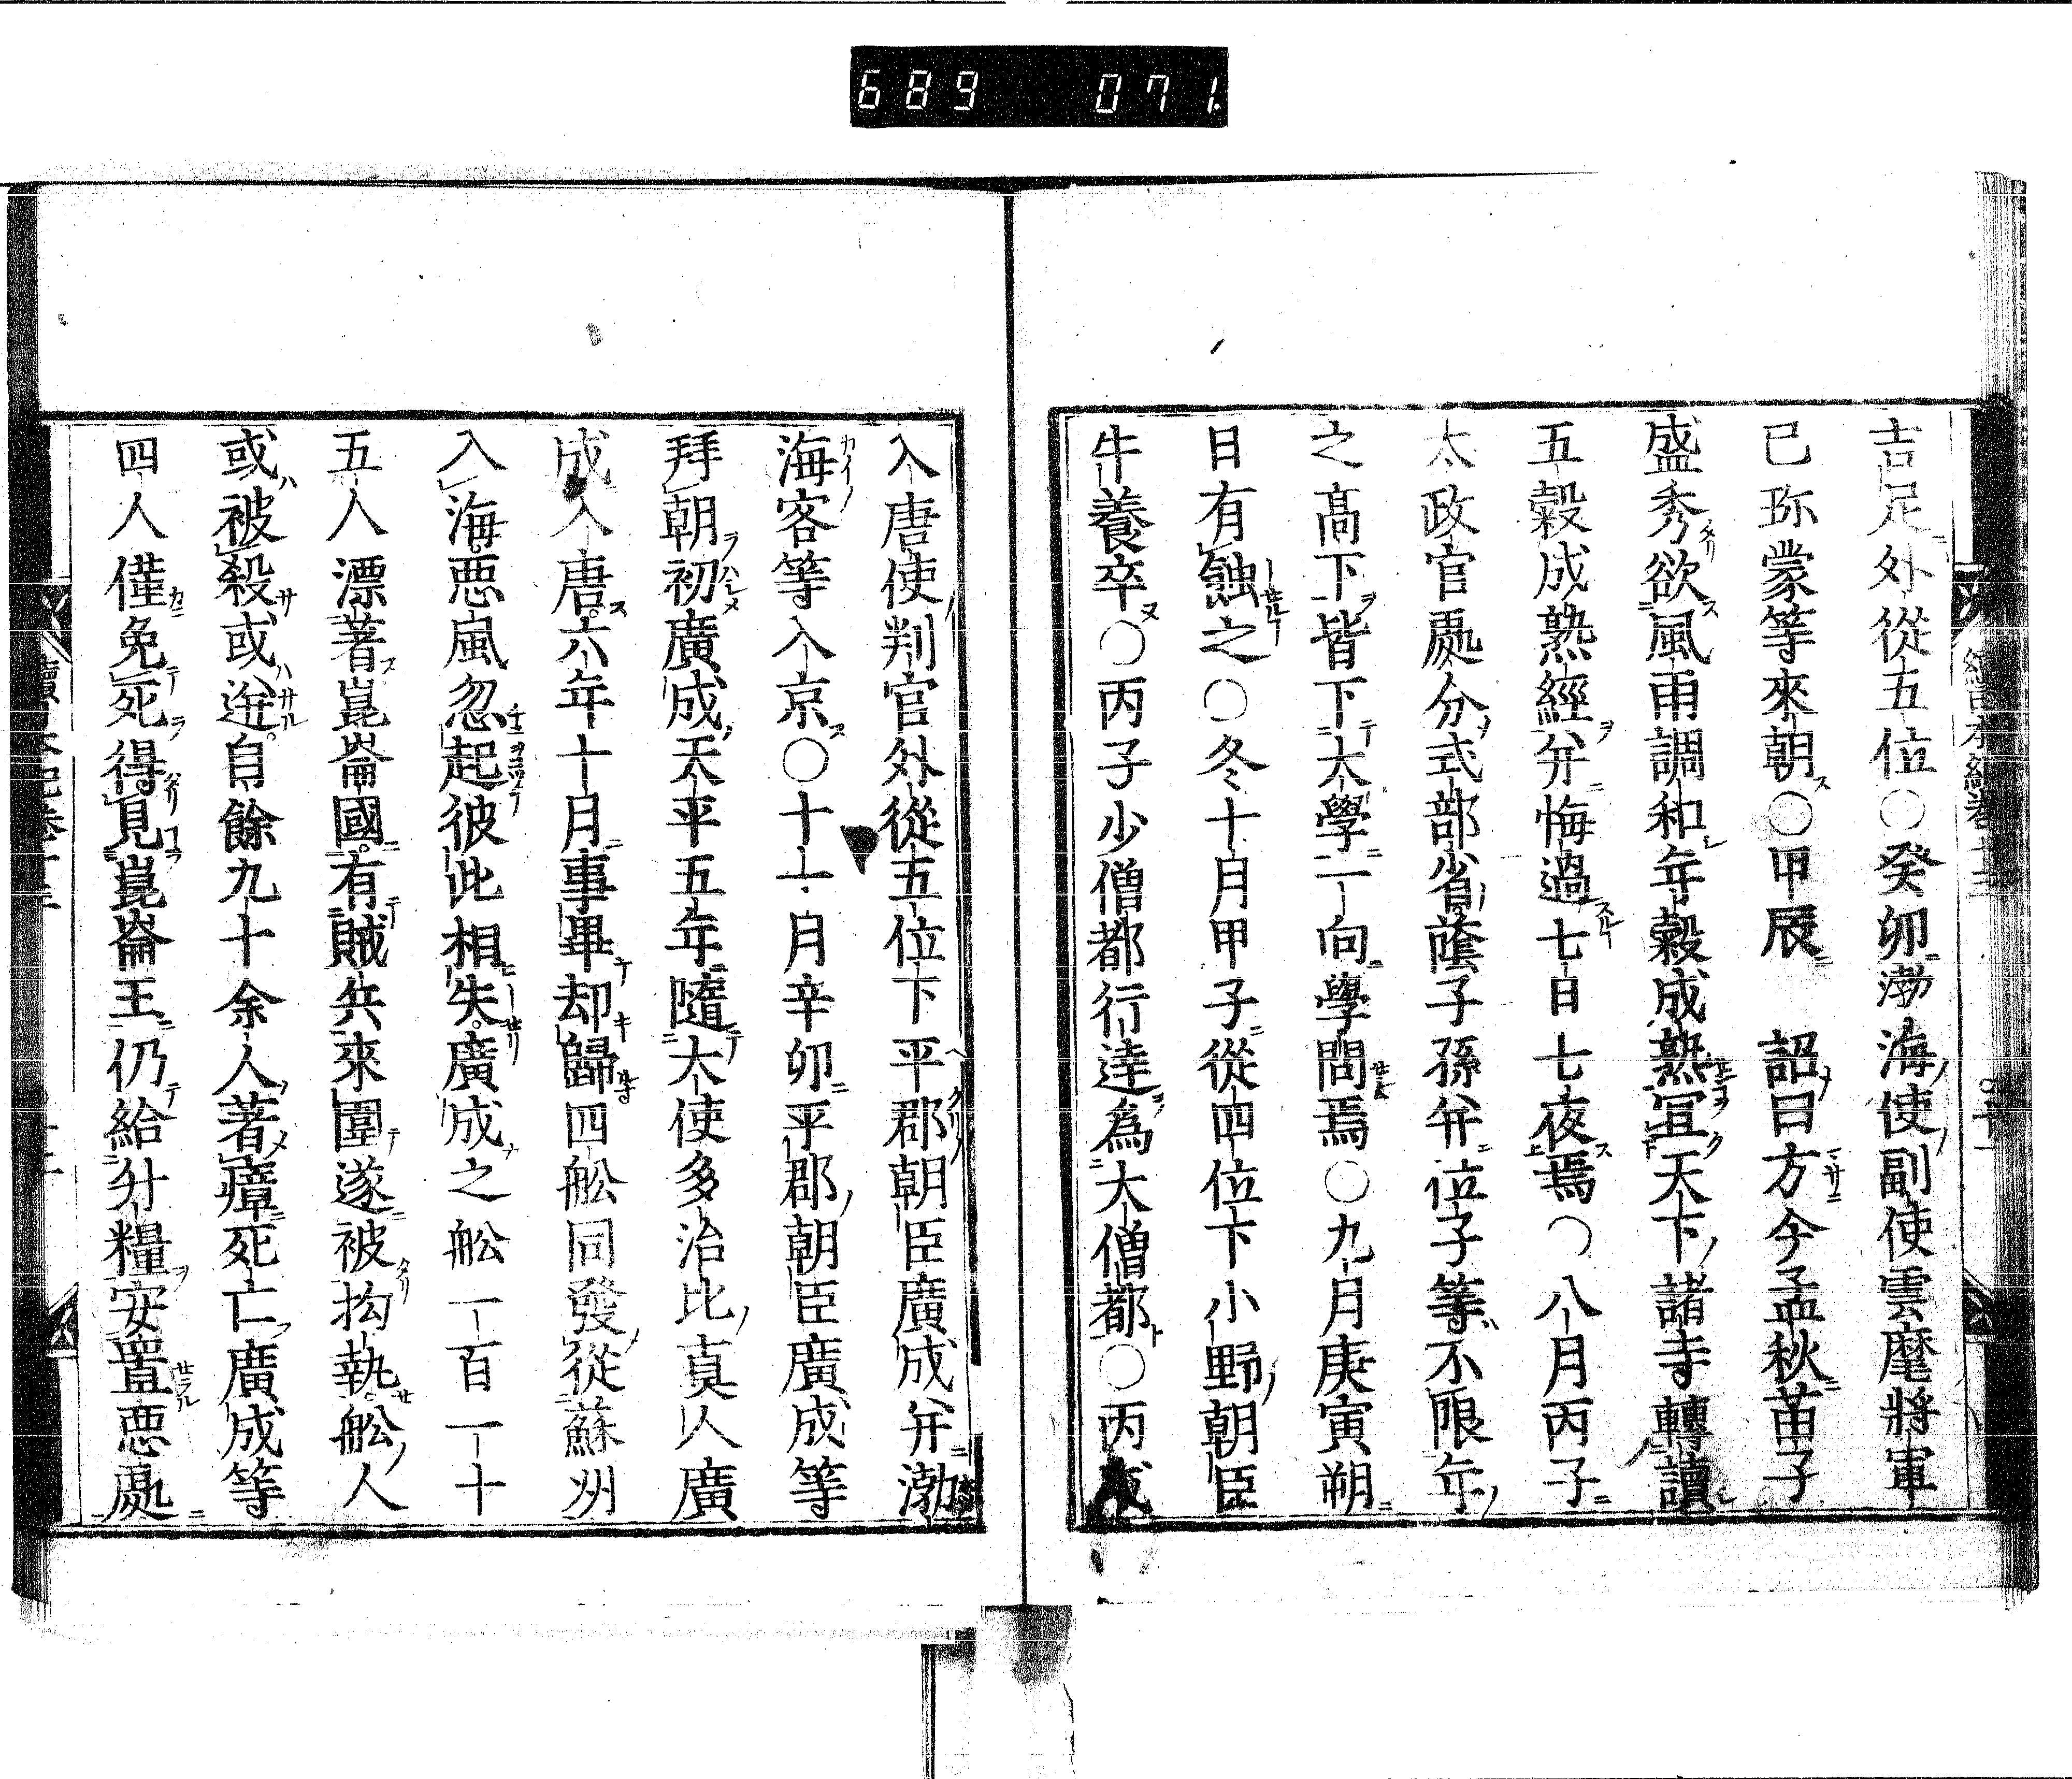 689 071
吉足外從五位○癸卯渤海使副使雲麾將軍
已珎蒙等來朝○甲辰 詔曰方今孟秋苗子
盛秀欲風雨調和年穀成熟宜天下諸寺轉讀
五穀成熟經并悔過七日七夜焉○八月丙子
太政官處分式部省蔭子孫并位子等不限年
之髙下皆下大學一向學問焉○九月庚寅朔
日有蝕之○冬十月甲子從四位下小野朝臣
牛養卒○丙子少僧都行達為大僧都○丙戌
入唐使判官外從五位下平郡朝臣廣成并渤
海客等入京○十一月辛卯平郡朝臣廣成等
拜朝初廣成天平五年隨大使多治比真人廣
成入唐六年十月事畢却歸四舩同發從蘇州
入海悪風忽起彼此相失廣成之舩一百一十
五人漂著崑崙國有賊兵來圍遂被拘執舩人
或被殺或迯自餘九十余人著瘴死亡廣成等
四人僅免死得見崑崙王仍給升糧安置悪處